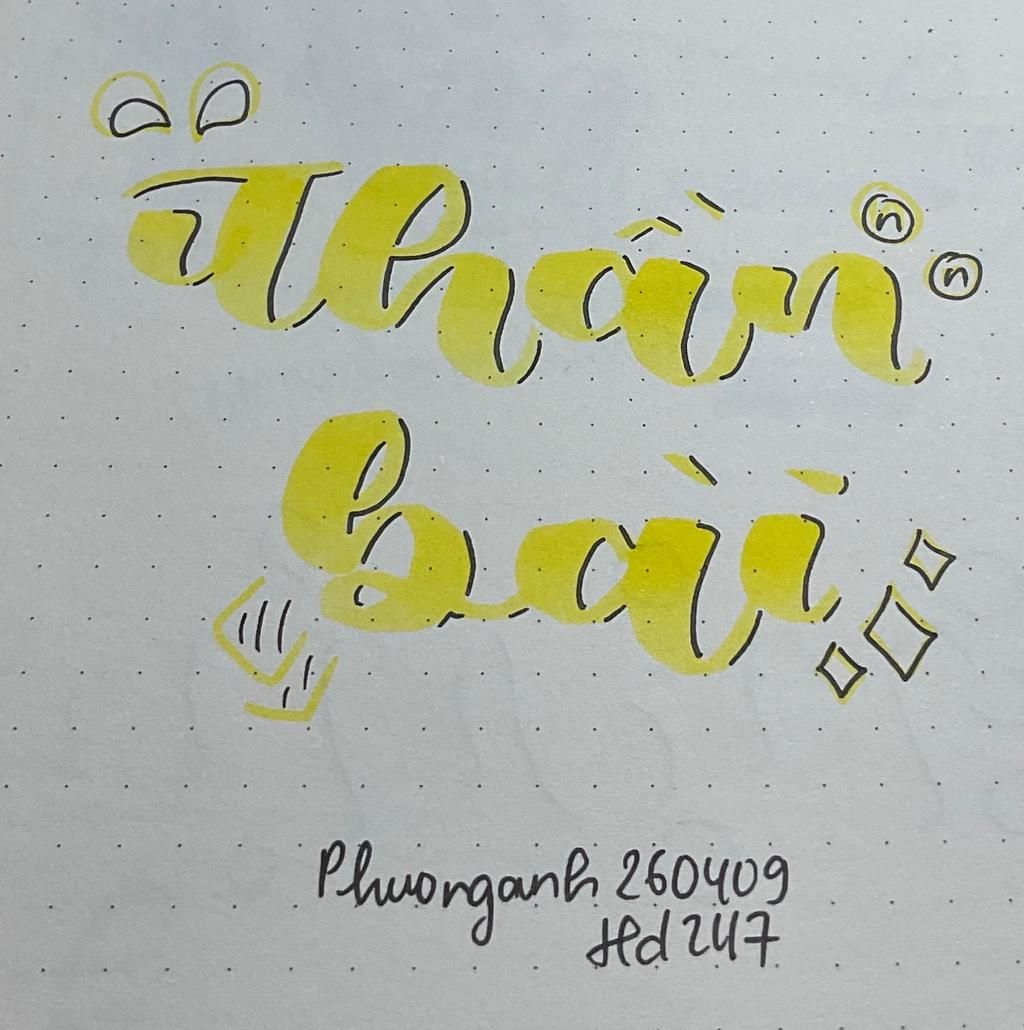 Thần ⓝ ⓝ
bài
Phuonganh 260409
Hd 247